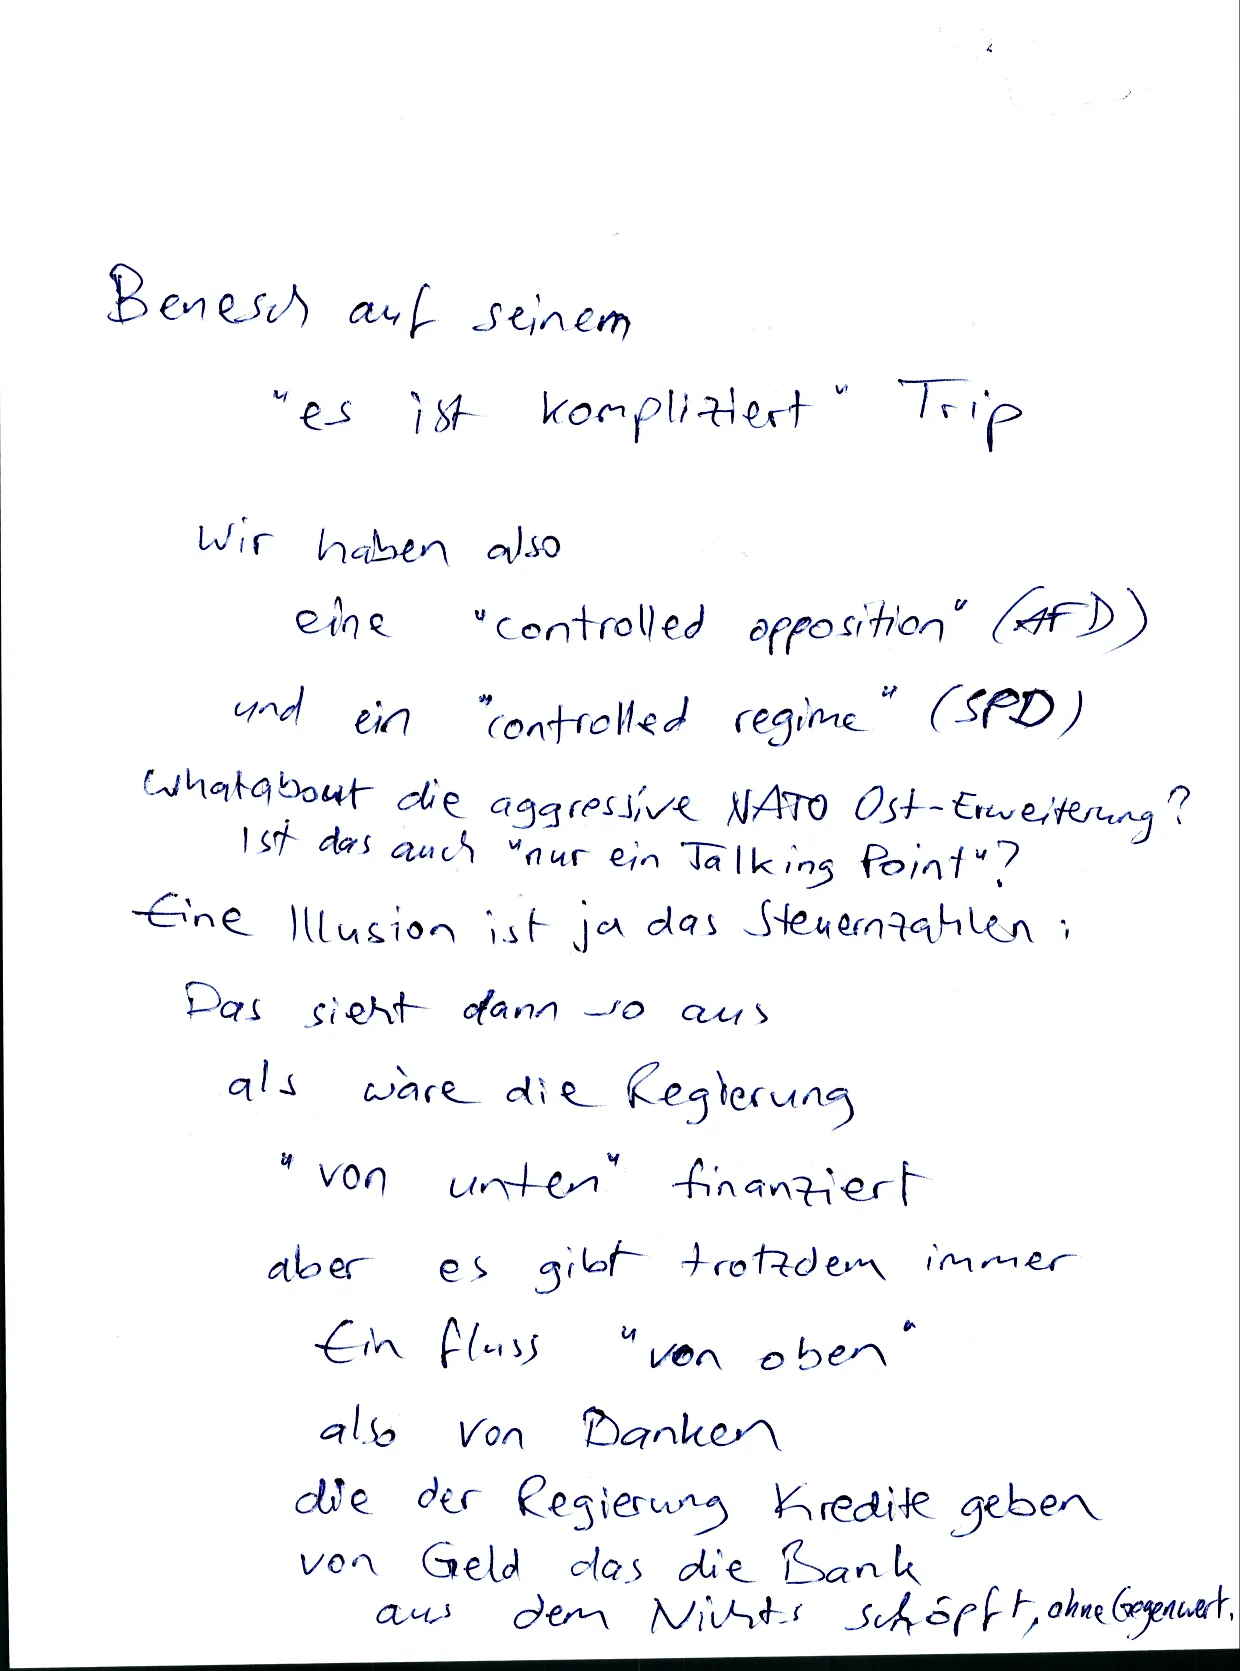 Benesch auf seinem
"es ist kompliziert" Trip
Wir haben also
eine "controlled opposition" (AFD)
und ein "controlled regime" (SPD)
Whatabout die aggressive NATO Ost-Erweiterung?
Ist das auch "nur ein Talking Point"?
Eine Illusion ist ja das Steuernzahlen:
Das sieht dann so aus
als wäre die Regierung
"von unten" finanziert
aber es gibt trotzdem immer
Ein Fluss "von oben"
also von Banken
die der Regierung Kredite geben
von Geld das die Bank
aus dem Nichts schöpft, ohne Gegenwert.